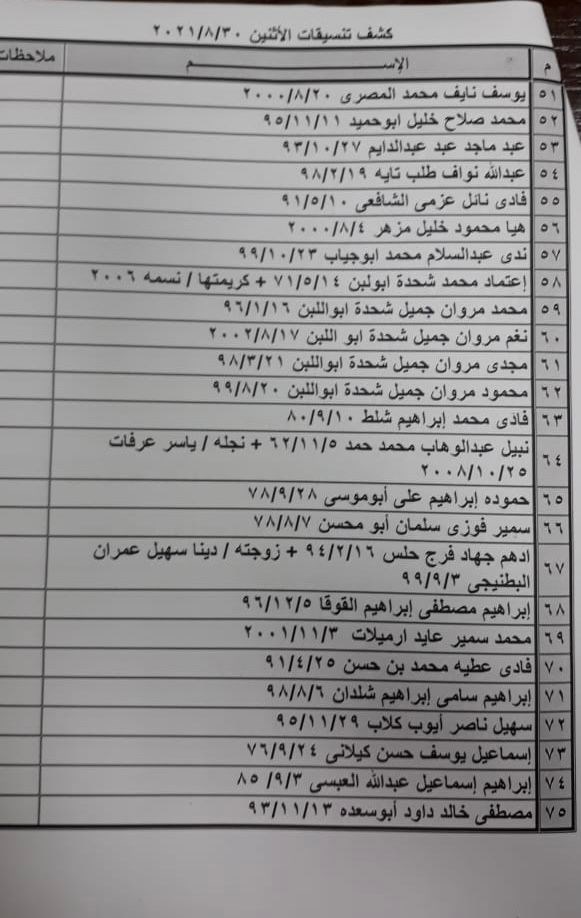 كشف تنسيقات الأثنين ٢٠٢١/٨/٣٠
م الإســـــــــم ملاحظات
٥١ يوسف نايف محمد المصرى ٢٠٠٠/٨/٢٠
٥٢ محمد صلاح خليل ابوحميد ٩٥/١١/١١
٥٣ عبد ماجد عبد عبدالدايم ٩٣/١٠/٢٧
٥٤ عبدالله نواف طلب تايه ٩٨/٢/١٩
٥٥ فادى نائل عزمى الشافعى ٩١/٥/١٠
٥٦ هيا محمود خليل مزهر ٢٠٠٠/٨/٤
٥٧ ندى عبدالسلام محمد ابوجياب ٩٩/١٠/٢٣
٥٨ إعتماد محمد شحدة ابولبن ٧١/٥/١٤ + كريمتها / نسمه ٢٠٠٦
٥٩ محمد مروان جميل شحدة ابواللبن ٩٦/١/١٦
٦٠ نغم مروان جميل شحدة ابو اللبن ٢٠٠٢/٨/١٧
٦١ مجدى مروان جميل شحدة ابواللبن ٩٨/٣/٢١
٦٢ محمود مروان جميل شحدة ابواللبن ٩٩/٨/٢٠
٦٣ فادى محمد إبراهيم شلط ٨٠/٩/١٠
٦٤ نبيل عبدالوهاب محمد حمد ٦٢/١١/٥ + نجله / ياسر عرفات
٢٠٠٨/١٠/٢٥
٦٥ حموده إبراهيم على أبوموسى ٧٨/٩/٢٨
٦٦ سمير فوزى سلمان أبو محسن ٧٨/٨/٧
٦٧ ادهم جهاد فرج حلس ٩٤/٢/١٦ + زوجته / دينا سهيل عمران
البطنيجى ٩٩/٩/٣
٦٨ إبراهيم مصطفى إبراهيم القوقا ٩٦/١٢/٥
٦٩ محمد سمير عايد ارميلات ٢٠٠١/١١/٣
٧٠ فادى عطيه محمد بن حسن ٩١/٤/٢٥
٧١ إبراهيم سامى إبراهيم شلدان ٩٨/٨/٦
٧٢ سهيل ناصر أيوب كلاب ٩٥/١١/٢٩
٧٣ إسماعيل يوسف حسن كيلانى ٧٦/٩/٢٤
٧٤ إبراهيم إسماعيل عبدالله العبسى ٨٥/٩/٣
٧٥ مصطفى خالد داود أبوسعده ٩٣/١١/١٣